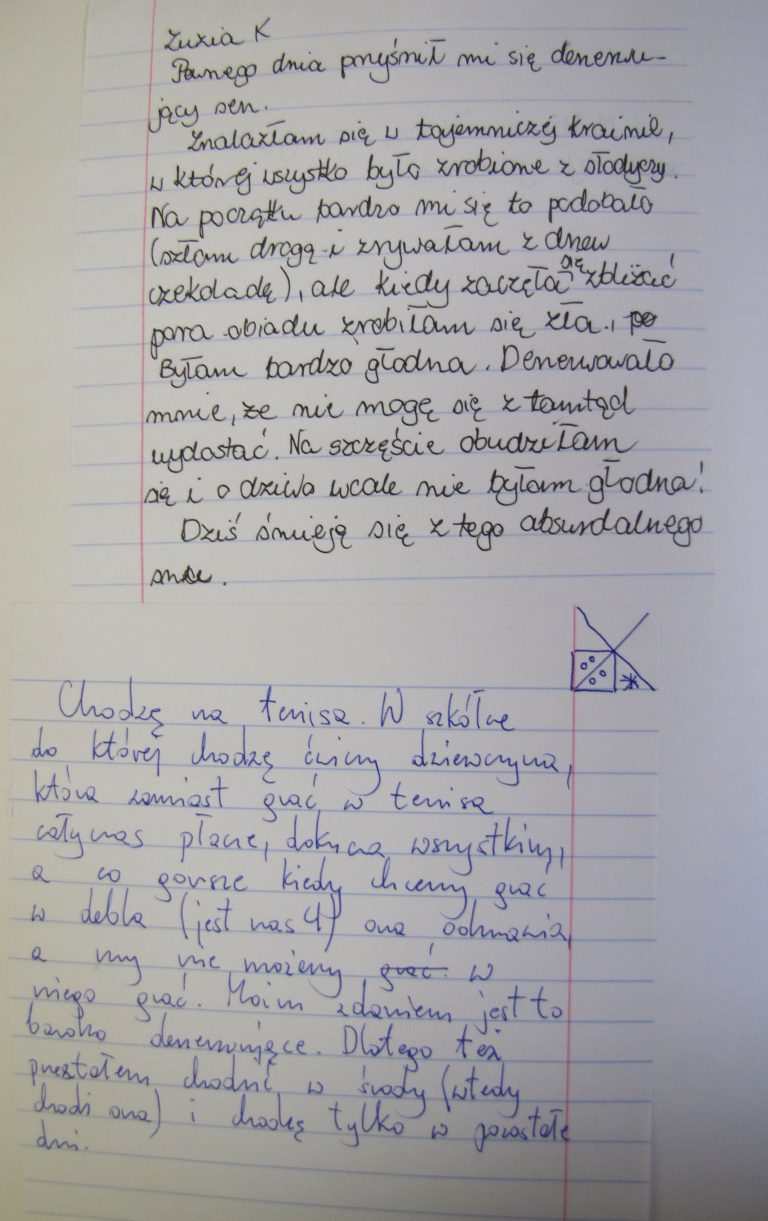 Zuzia K
Pewnego dnia przyśnił mi się denerwu-
jący sen.
Znalazłam się w tajemniczej krainie,
w której wszystko było zrobione z słodyczy.
Na początku bardzo mi się to podobało
(szłam drogą i zrywałam z drzew
czekoladę), ale kiedy zaczęła się zbliżać
pora obiadu zrobiłam się zła, po
Byłam bardzo głodna. Denerwowało
mnie, że nie mogę się z tamtąd
wydostać. Na szczęście obudziłam
się i o dziwo wcale nie byłam głodna!
Dziś śmieją się z tego absurdalnego
snu.
Chodzę na tenisa. W szkółce
do której chodzę ćwiczy dziewczyna,
która zamiast grać w tenisa
cały czas płacze, dokucza wszystkim,
a co gorsze kiedy chcemy grać
w debla (jest nas 4) ona odmawia,
a my nie możemy grać w
niego grać. Moim zdaniem jest to
bardzo denerwujące. Dlatego też
przestałem chodzić w środy (wtedy
chodzi ona) i chodzę tylko w pozostałe
dni.